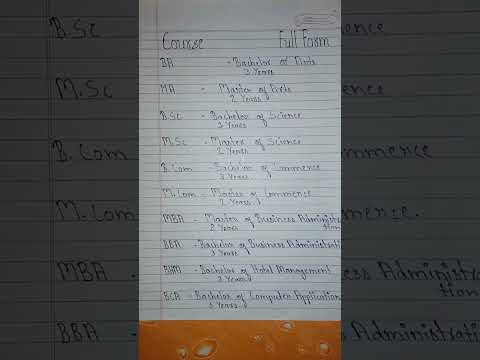 Course Full Form
BA - Bachelor of Arts
3 Years
MA - Master of Arts
2 Years
B.Sc - Bachelor of Science
3 Years
M.Sc - Master of Science
2 Years
B.Com - Bachelor of Commerce
3 Years
M.Com - Master of Commerce
2 Years
MBA - Master of Business Administra
tion
2 Years
BBA - Bachelor of Business Administrati
3 Years
BHM - Bachelor of Hotel Management
3 Years
BCA - Bachelor of Computer Application
3 Years